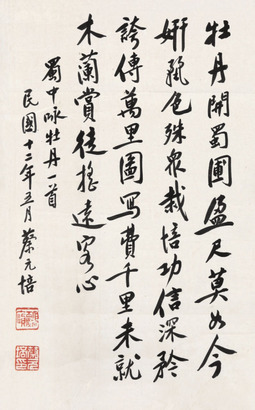 牡丹開蜀圃盈尺莫如今
妍麗色殊衆栽培功信深矜
誇傳萬里圖寫費千里未就
木蘭賞徒搖遠客心
蜀中咏牡丹一首
民國十二年五月 蔡元培